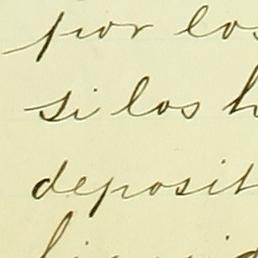 por los
si los h
deposit